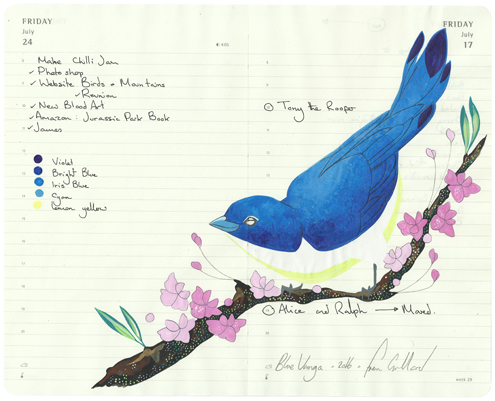 FRIDAY
July
24
Make Chilli Jam
✓ Photoshop
✓ Website Birds + Mountains
✓ Reunion
✓ New Blood Art
✓ Amazon: Jurassic Park Book
✓ James
Violet
Bright Blue
Iris Blue
Cyan
lemon yellow
FRIDAY
July
17
Tony the Roofer
Alice and Ralph → Moved.
Blue Vanga - 2016 -
week 29